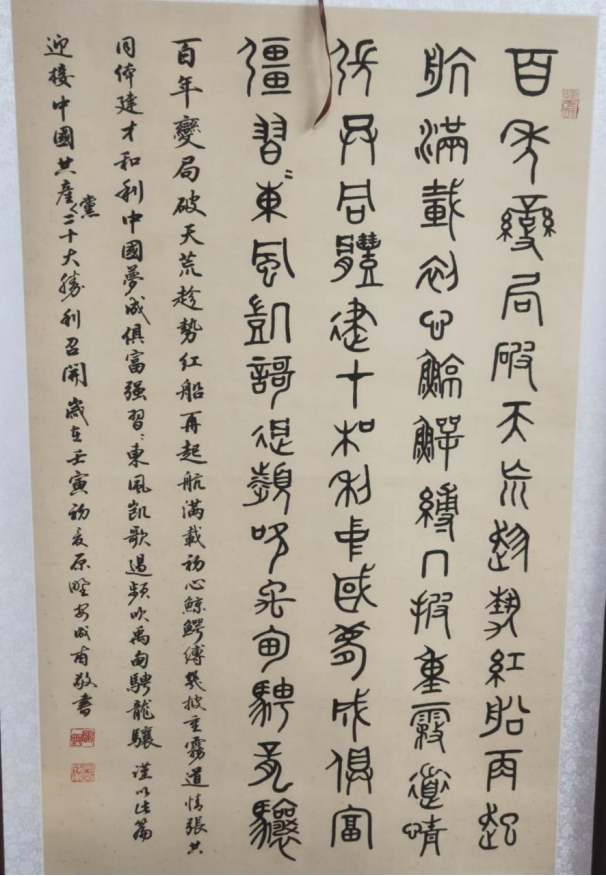 百年變局破天荒趁勢紅船再起
航滿載初心鯨鰐縛幾披重霧道晴
張共同體建才和利中國夢成俱富
彊習〻東風凱歌遏頻吹禹甸騁龍驤
百年變局破天荒趁勢红船再起航滿載初心鯨鰐縛幾披重霧道情張共
同体建才和利中國夢成俱富强習〻東風凱歌遏頻吹禹甸騁龍驤 謹以此篇
迎接中國共產黨二十大勝利召開 歲在壬寅初夏原野安成甫敬書